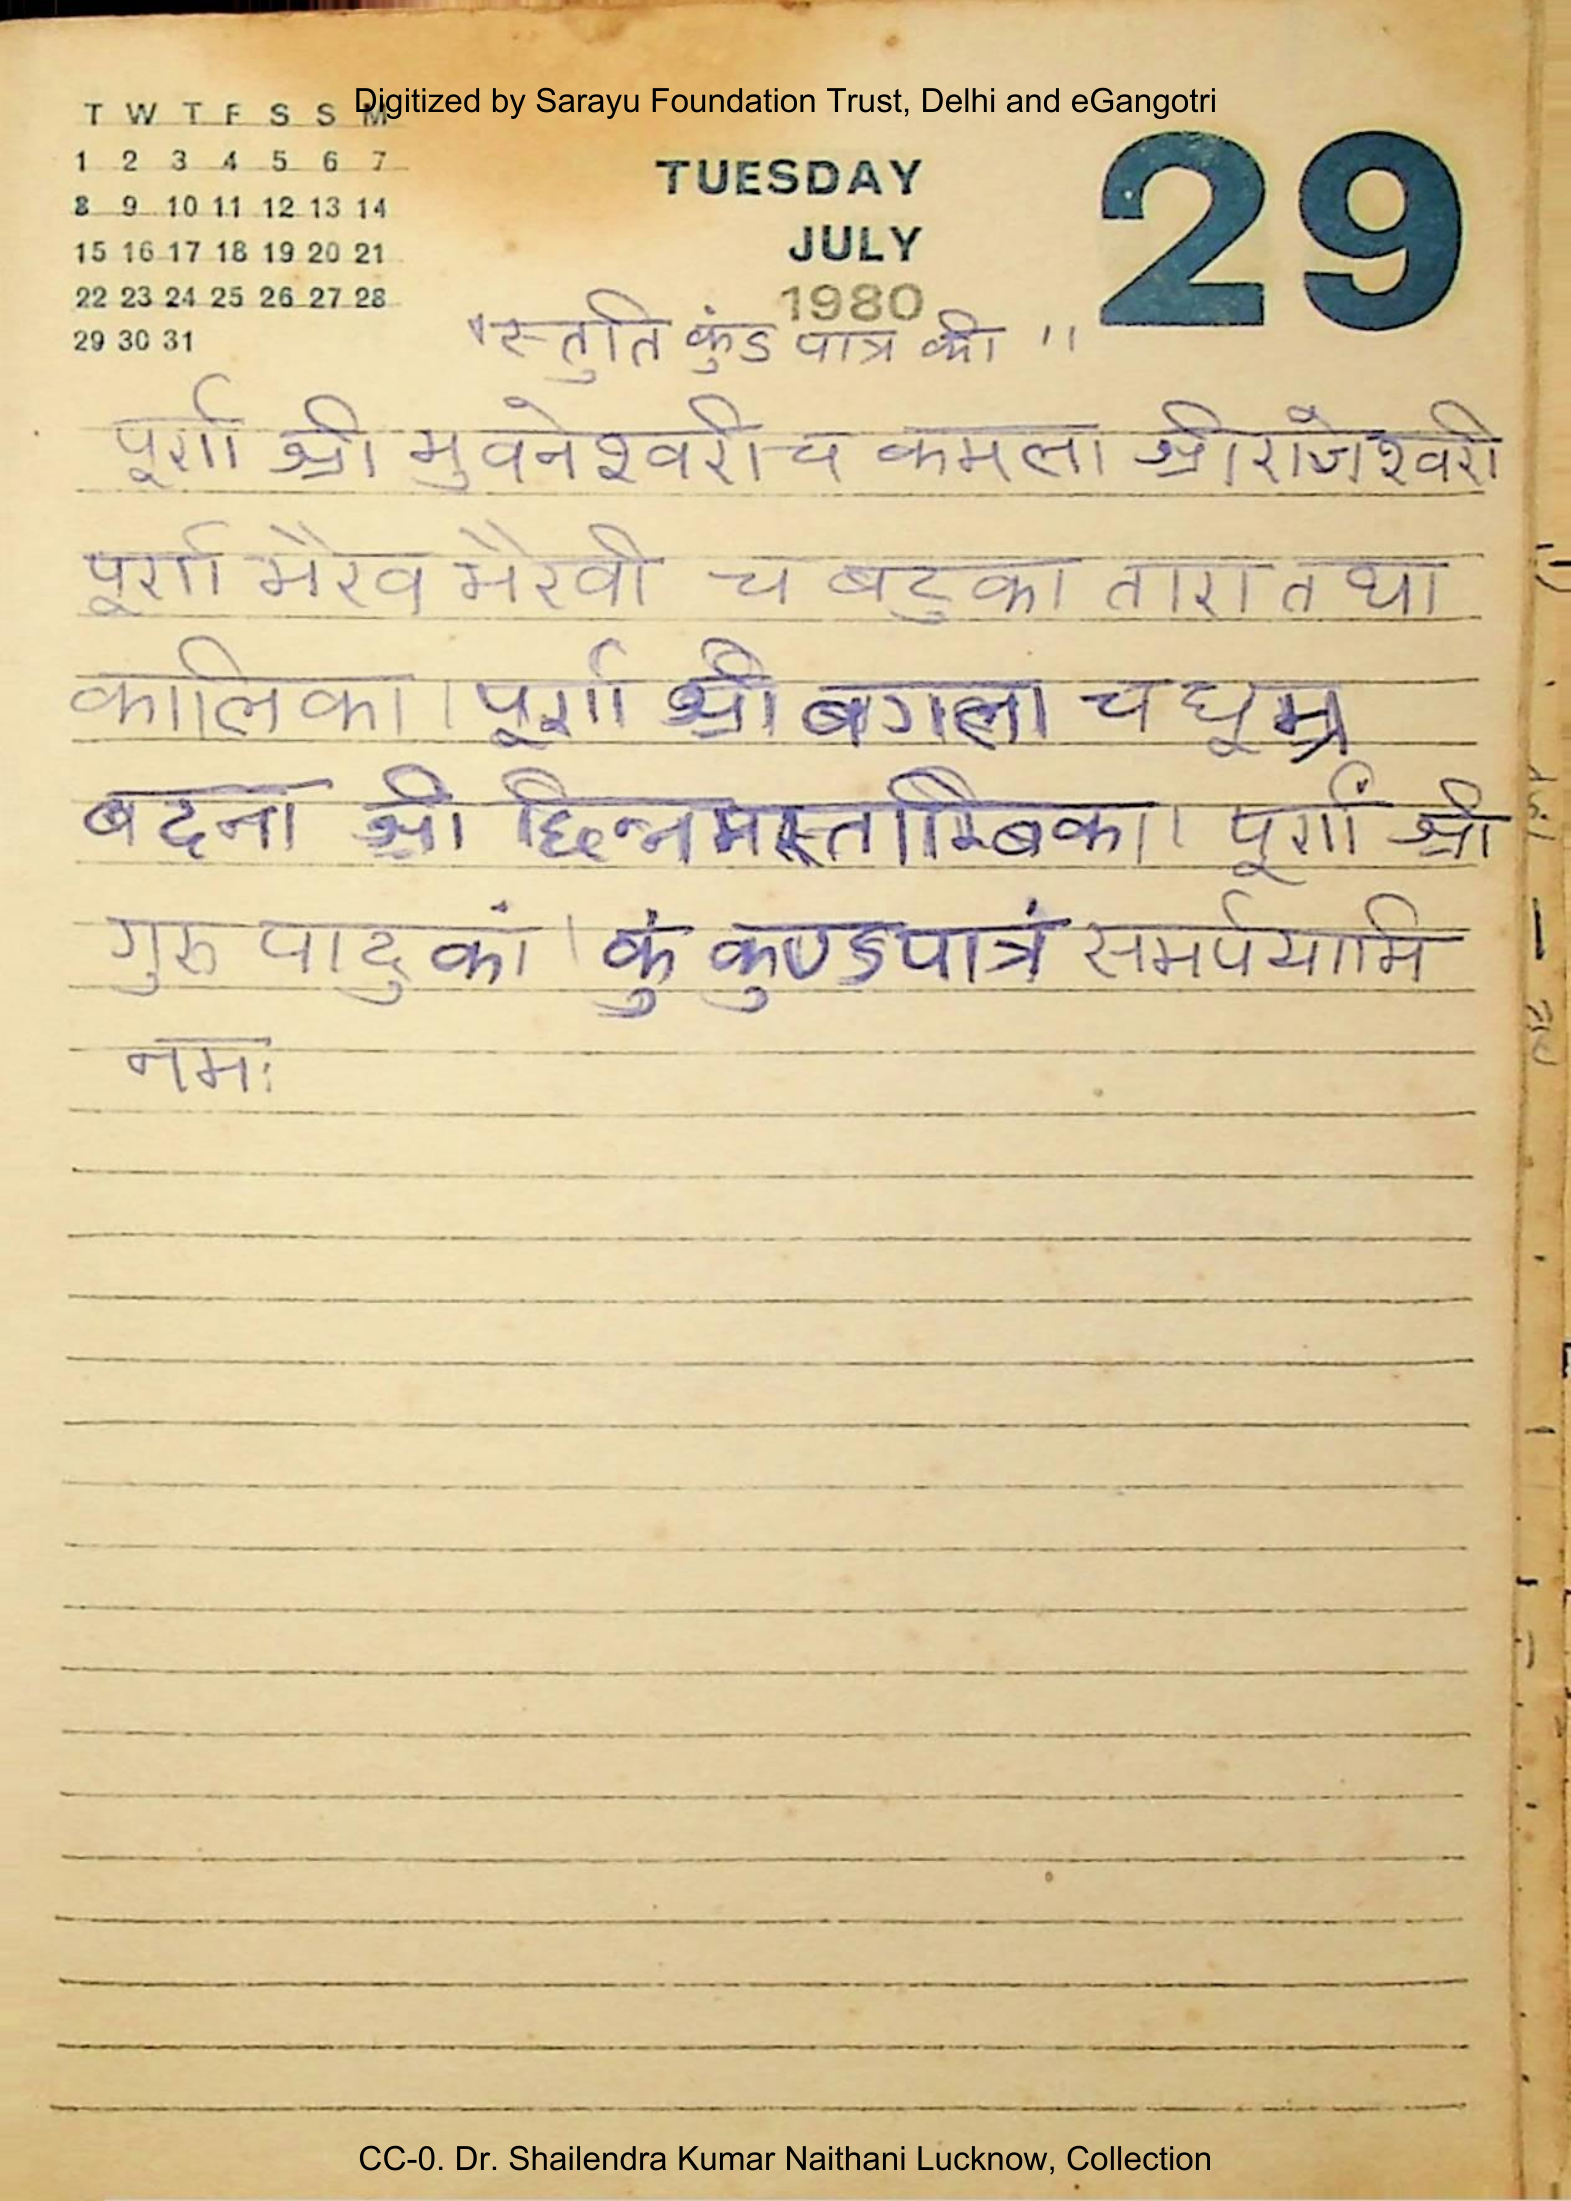 Digitized by Sarayu Foundation Trust, Delhi and eGangotri
T W T F S S M
1 2 3 4 5 6 7
8 9 10 11 12 13 14
15 16 17 18 19 20 21
22 23 24 25 26 27 28
29 30 31
TUESDAY
JULY
1980
29
"स्तुति कुंड पात्र की"
पूर्णा श्री भुवनेश्वरी च कमला श्री राजेश्वरी
पूर्णा भैरव भैरवी च बटुका तारा तथा
कालिका। पूर्णा श्री बगला च धूम्र
बदना श्री छिन्नमस्ताम्बिका। पूर्णां श्री
गुरु पादुकां। कुं कुण्डपात्रं समर्पयामि
नमः
CC-0. Dr. Shailendra Kumar Naithani Lucknow, Collection